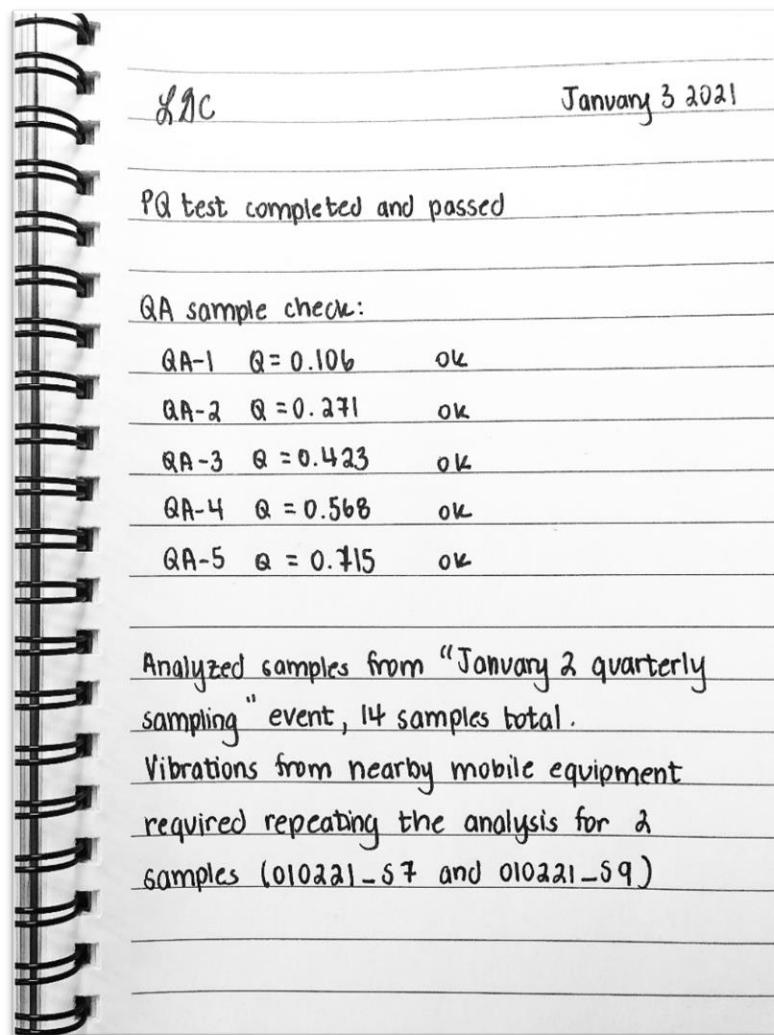 LDC January 3 2021
PQ test completed and passed
QA sample check:
QA-1 Q = 0.106 ok
QA-2 Q = 0.271 ok
QA-3 Q = 0.423 ok
QA-4 Q = 0.568 ok
QA-5 Q = 0.715 ok
Analyzed samples from "January 2 quarterly
sampling" event, 14 samples total.
Vibrations from nearby mobile equipment
required repeating the analysis for 2
samples (010221_S7 and 010221_S9)